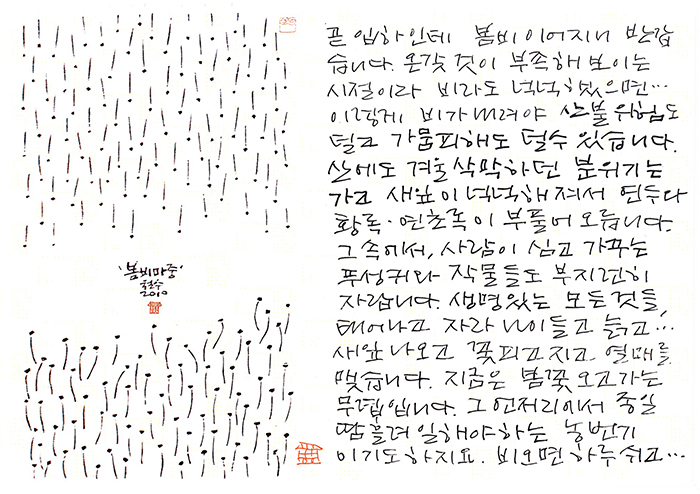 '봄비마중'
철수
2010
곧 입하인데 봄비 이어지니 반갑
습니다. 온갖 것이 부족해 보이는
시절이라 비라도 넉넉했으면…
이렇게 비가 내려야 산불위험도
덜고 가뭄피해도 덜수 있습니다.
산에도 겨울 삭막하던 분위기는
가고 새잎이 넉넉해져서 연두다
황록·연초록이 부풀어 오릅니다.
그 속에서, 사람이 심고 가꾸는
푸성귀와 작물들도 부지런히
자랍니다. 생명있는 모든것들,
태어나고 자라 나이들고 늙고…
새잎 나오고 꽃피고 지고 열매를
맺습니다. 지금은 봄꽃 오고가는
무렵입니다. 그 언저리에서 종일
땀흘려 일해야하는 농번기
이기도하지요. 비오면 하루 쉬고…